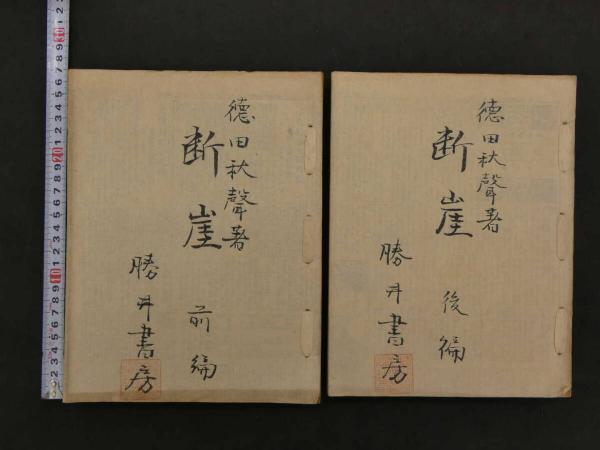 徳田秋聲著
断崖 後編
勝井書房
徳田秋聲著
断崖 前編
勝井書房